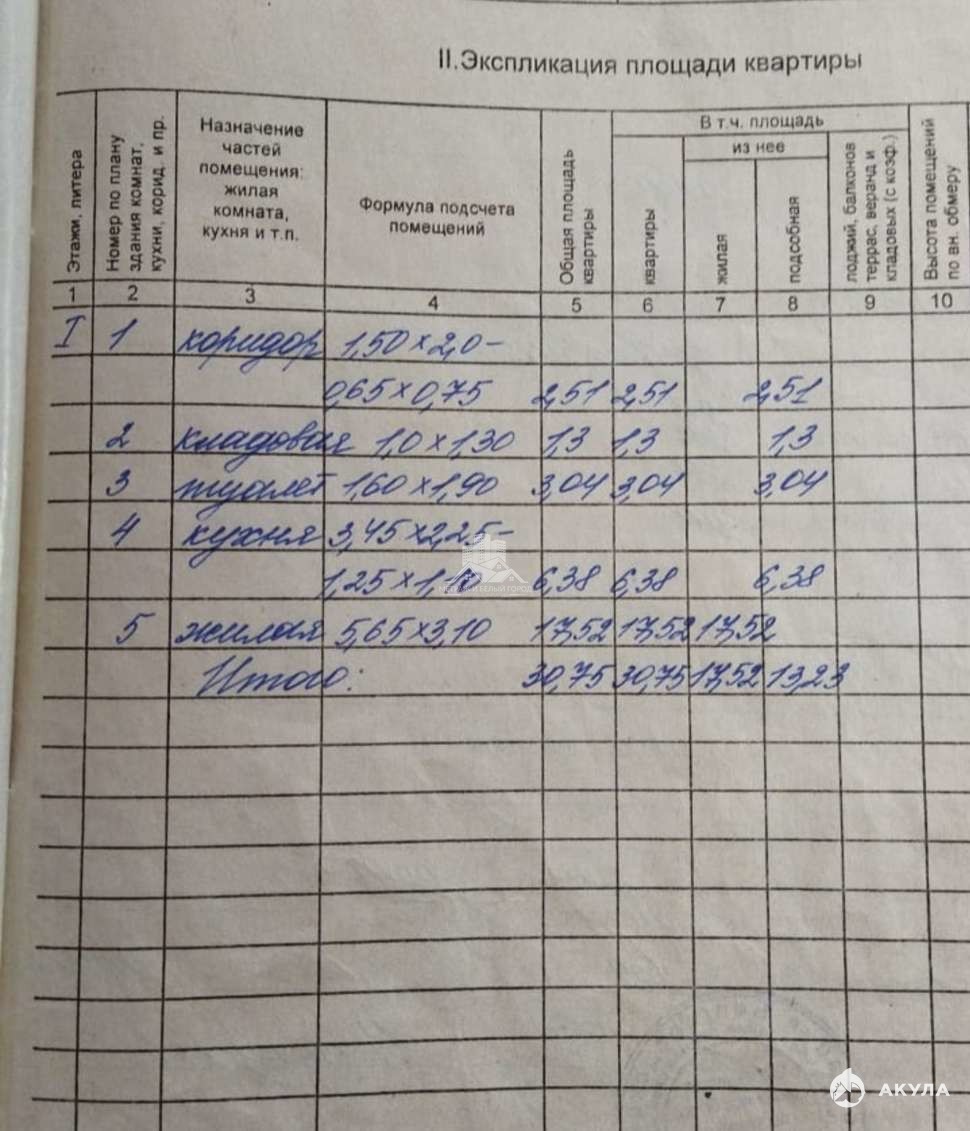 II.Экспликация площади квартиры
Этажи, литера
Номер по плану здания комнат, кухни, корид. и пр.
Назначение частей помещения: жилая комната, кухня и т.п.
Формула подсчета помещений
Общая площадь квартиры
В т.ч. площадь
из нее
квартиры
жилая
подсобная
лоджий, балконов террас, веранд и кладовых (с коэф.)
Высота помещений по вн. обмеру
1 2 3 4 5 6 7 8 9 10
I 1 коридор 1,50×2,0-
0,65×0,75 2,51 2,51 2,51
2 кладовая 1,0×1,30 1,3 1,3 1,3
3 туалет 1,60×1,90 3,04 3,04 3,04
4 кухня 3,45×2,25-
1,25×1,10 6,38 6,38 6,38
5 жилая 5,65×3,10 17,52 17,52 17,52
Итого: 30,75 30,75 17,52 13,23
АКУЛА